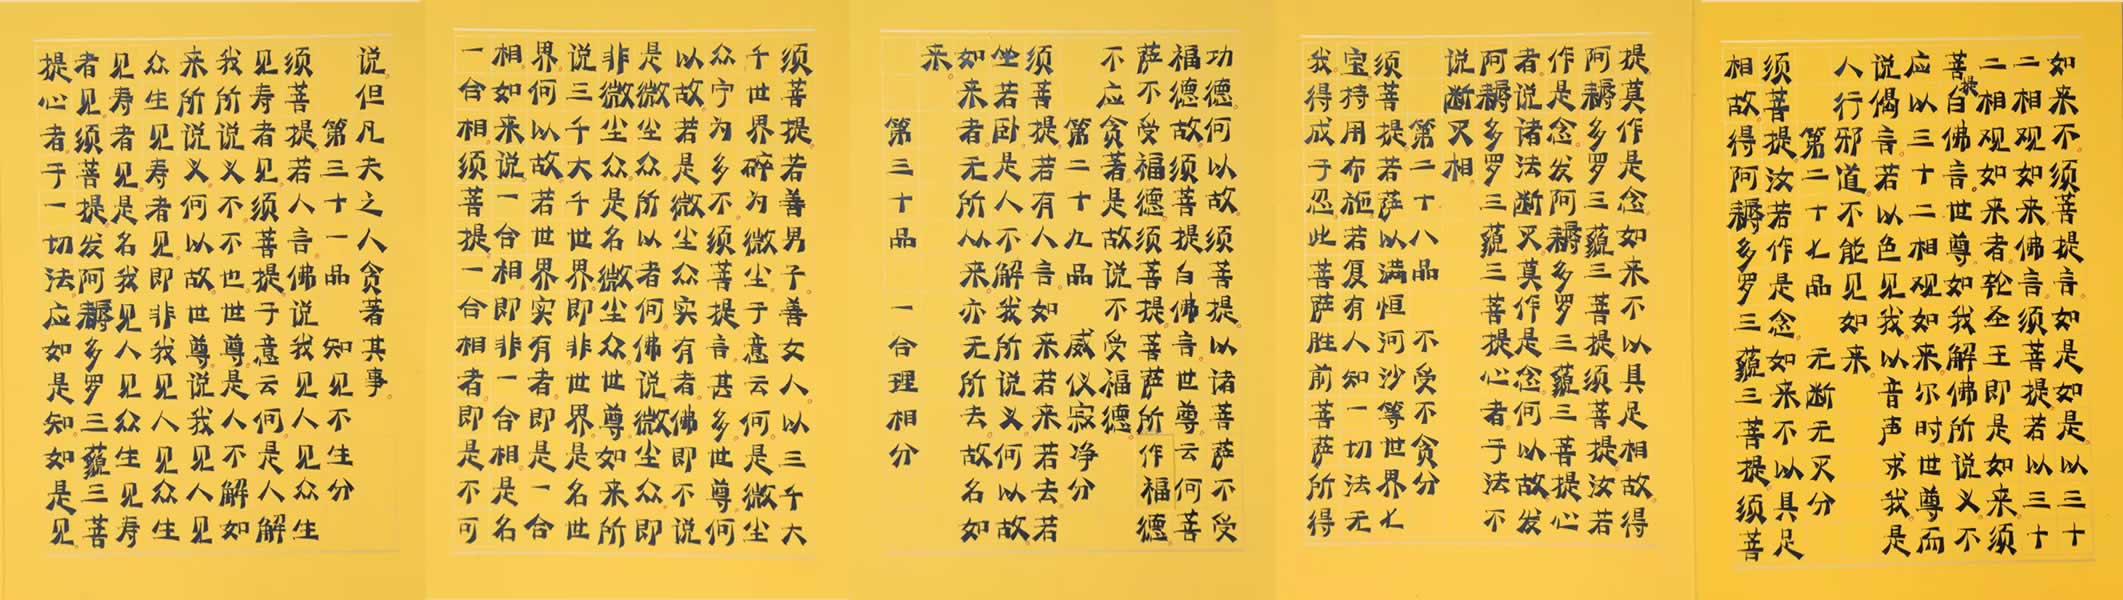 如来不须菩提言如是如是以三十
二相观如来佛言须菩提若以三十
二相观如来者轮圣王即是如来须
菩提白佛言世尊如我解佛所说义不
应以三十二相观如来尔时世尊而
说偈言若以色见我以音声求我是
人行邪道不能见如来
第二十七品 无断无灭分
须菩提汝若作是念如来不以具足
相故得阿耨多罗三藐三菩提须菩
提莫作是念如来不以具足相故得
阿耨多罗三藐三菩提须菩提汝若
作是念发阿耨多罗三藐三菩提心
者说诸法断灭莫作是念何以故发
阿耨多罗三藐三菩提心者于法不
说断灭相
第二十八品 不受不贪分
须菩提若菩萨以满恒河沙等世界七
宝持用布施若复有人知一切法无
我得成于忍此菩萨胜前菩萨所得
功德何以故须菩提以诸菩萨不受
福德故须菩提白佛言世尊云何菩
萨不受福德须菩提菩萨所作福德
不应贪著是故说不受福德
第二十九品 威仪寂净分
须菩提若有人言如来若来若去若
坐若卧是人不解我所说义何以故
如来者无所从来亦无所去故名如
来
第三十品 一合理相分
须菩提若善男子善女人以三千大
千世界碎为微尘于意云何是微尘
众宁为多不须菩提言甚多世尊何
以故若是微尘众实有者佛即不说
是微尘众所以者何佛说微尘众即
非微尘众是名微尘众世尊如来所
说三千大千世界即非世界是名世
界何以故若世界实有者即是一合
相如来说一合相即非一合相是名
一合相须菩提一合相者即是不可
说但凡夫之人贪著其事
第三十一品 知见不生分
须菩提若人言佛说我见人见众生
见寿者见须菩提于意云何是人解
我所说义不不也世尊是人不解如
来所说义何以故世尊说我见人见
众生见寿者见即非我见人见众生
见寿者见是名我见人见众生见寿
者见须菩提发阿耨多罗三藐三菩
提心者于一切法应如是知如是见